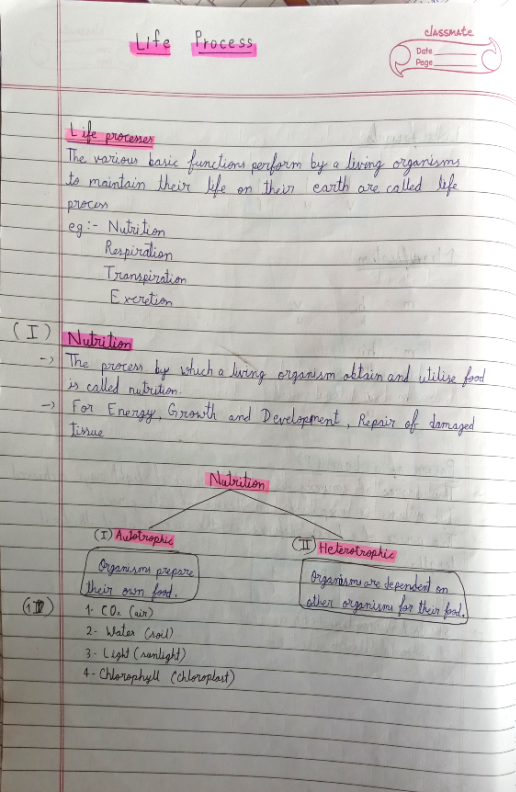 Life Process
classmate
Date
Page
Life processes
The various basic functions perform by a living organisms
to maintain their life on their earth are called life
process
eg:- Nutrition
Respiration
Transpiration
Excretion
(I) Nutrition
-> The process by which a living organism obtain and utilise food
is called nutrition.
-> For Energy, Growth and Development, Repair of damaged
tissue
Nutrition
(I) Autotrophic
(II) Heterotrophic
Organisms prepare
their own food.
Organisms are dependent on
other organisms for their food.
1. CO2 (air)
2- Water (soil)
3- Light (sunlight)
4- Chlorophyll (chloroplast)